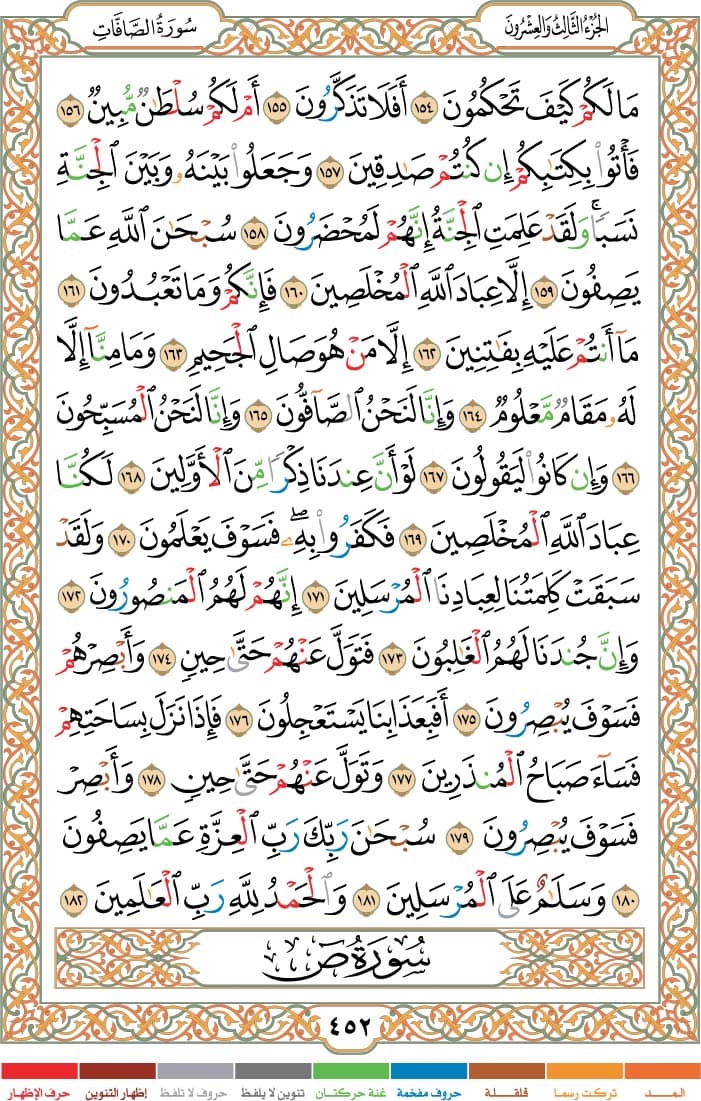 الجزء الثالث والعشرون
سورة الصافات
مَا لَكُمْ كَيْفَ تَحْكُمُونَ ١٥٤ أَفَلَا تَذَكَّرُونَ ١٥٥ أَمْ لَكُمْ سُلْطَٰنٌ مُّبِينٌ ١٥٦
فَأْتُوا۟ بِكِتَٰبِكُمْ إِن كُنتُمْ صَٰدِقِينَ ١٥٧ وَجَعَلُوا۟ بَيْنَهُۥ وَبَيْنَ ٱلْجِنَّةِ
نَسَبًۭا ۚ وَلَقَدْ عَلِمَتِ ٱلْجِنَّةُ إِنَّهُمْ لَمُحْضَرُونَ ١٥٨ سُبْحَٰنَ ٱللَّهِ عَمَّا
يَصِفُونَ ١٥٩ إِلَّا عِبَادَ ٱللَّهِ ٱلْمُخْلَصِينَ ١٦٠ فَإِنَّكُمْ وَمَا تَعْبُدُونَ ١٦١
مَآ أَنتُمْ عَلَيْهِ بِفَٰتِنِينَ ١٦٢ إِلَّا مَنْ هُوَ صَالِ ٱلْجَحِيمِ ١٦٣ وَمَا مِنَّآ إِلَّا
لَهُۥ مَقَامٌۭ مَّعْلُومٌۭ ١٦٤ وَإِنَّا لَنَحْنُ ٱلصَّآفُّونَ ١٦٥ وَإِنَّا لَنَحْنُ ٱلْمُسَبِّحُونَ
١٦٦ وَإِن كَانُوا۟ لَيَقُولُونَ ١٦٧ لَوْ أَنَّ عِندَنَا ذِكْرًۭا مِّنَ ٱلْأَوَّلِينَ ١٦٨ لَكُنَّا
عِبَادَ ٱللَّهِ ٱلْمُخْلَصِينَ ١٦٩ فَكَفَرُوا۟ بِهِۦ ۖ فَسَوْفَ يَعْلَمُونَ ١٧٠ وَلَقَدْ
سَبَقَتْ كَلِمَتُنَا لِعِبَادِنَا ٱلْمُرْسَلِينَ ١٧١ إِنَّهُمْ لَهُمُ ٱلْمَنصُورُونَ ١٧٢
وَإِنَّ جُندَنَا لَهُمُ ٱلْغَٰلِبُونَ ١٧٣ فَتَوَلَّ عَنْهُمْ حَتَّىٰ حِينٍۢ ١٧٤ وَأَبْصِرْهُمْ
فَسَوْفَ يُبْصِرُونَ ١٧٥ أَفَبِعَذَابِنَا يَسْتَعْجِلُونَ ١٧٦ فَإِذَا نَزَلَ بِسَاحَتِهِمْ
فَسَآءَ صَبَاحُ ٱلْمُنذَرِينَ ١٧٧ وَتَوَلَّ عَنْهُمْ حَتَّىٰ حِينٍۢ ١٧٨ وَأَبْصِرْ
فَسَوْفَ يُبْصِرُونَ ١٧٩ سُبْحَٰنَ رَبِّكَ رَبِّ ٱلْعِزَّةِ عَمَّا يَصِفُونَ
١٨٠ وَسَلَٰمٌ عَلَى ٱلْمُرْسَلِينَ ١٨١ وَٱلْحَمْدُ لِلَّهِ رَبِّ ٱلْعَٰلَمِينَ ١٨٢
سُورَةُ صٓ
٤٥٢
المـــد تركت رسما قلقـلـة حروف مفخمة غنة حركتـان تنوين لا يلفظ حروف لا تلفظ إظهار التنوين حرف الإظهار